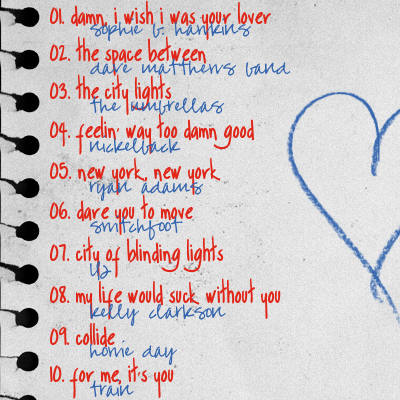 01. damn, i wish i was your lover
sophie b. hawkins
02. the space between
dave matthews band
03. the city lights
the umbrellas
04. feelin' way too damn good
nickelback
05. new york, new york
ryan adams
06. dare you to move
switchfoot
07. city of blinding lights
u2
08. my life would suck without you
kelly clarkson
09. collide
howie day
10. for me, it's you
train